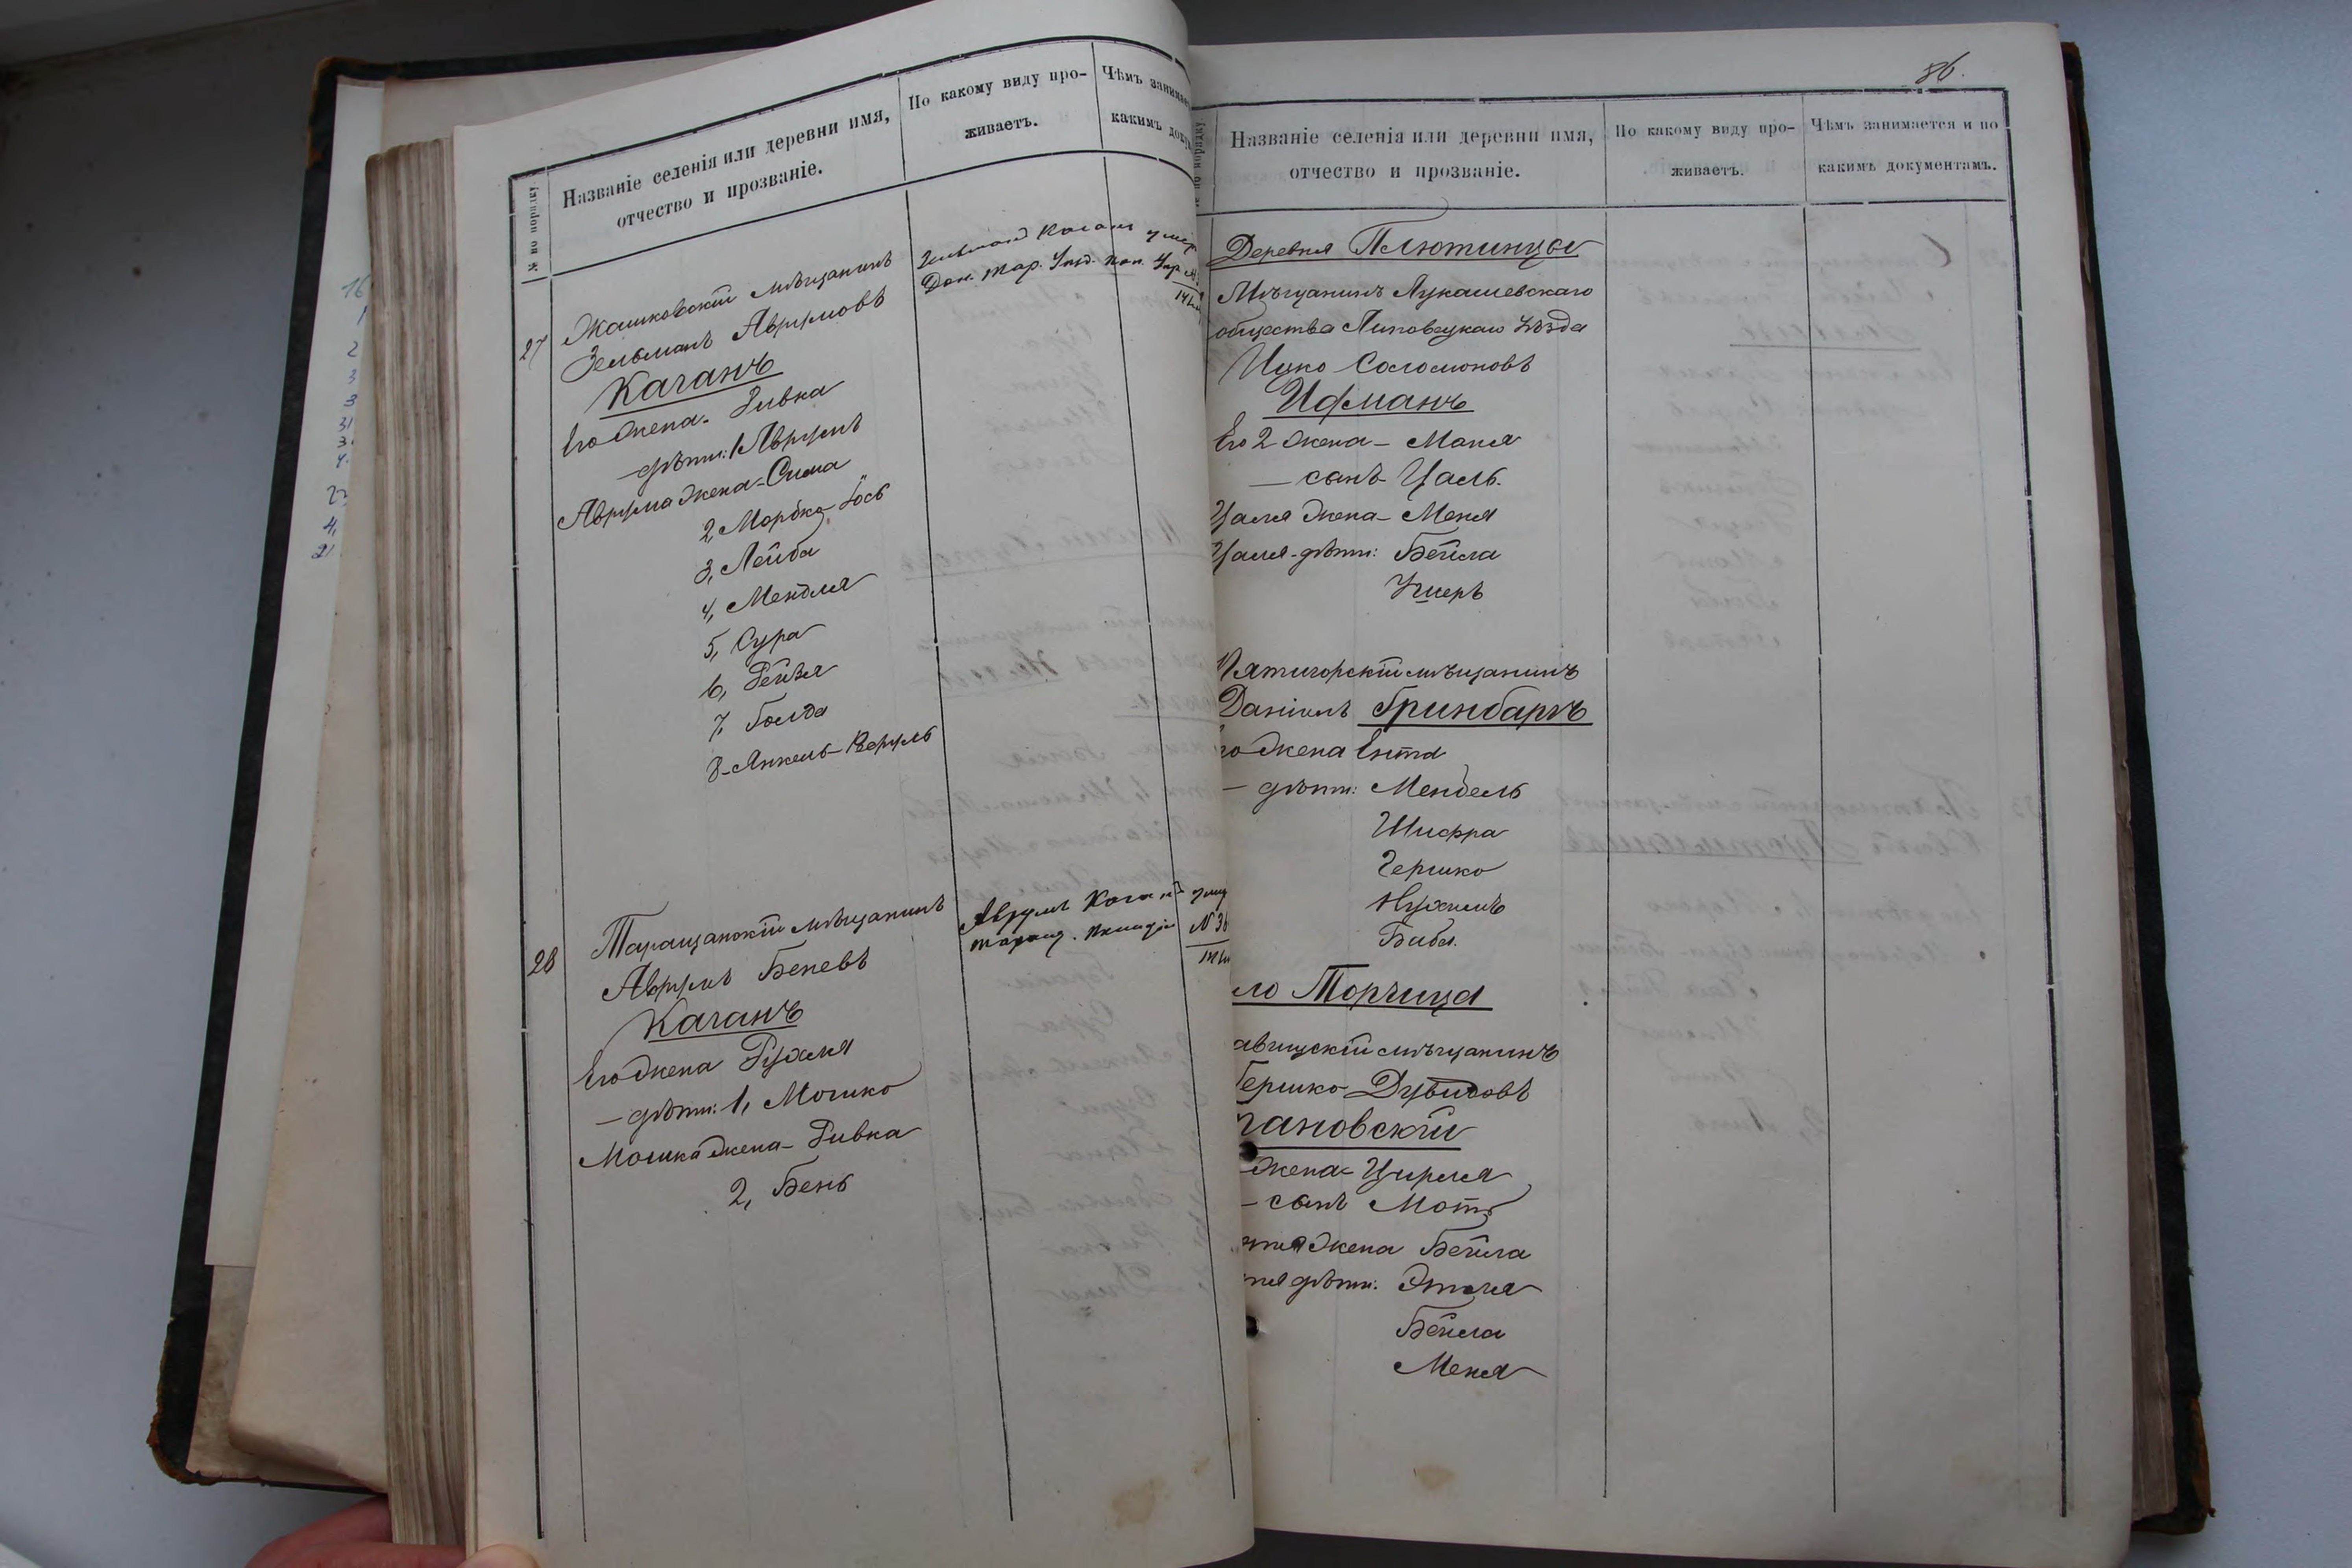 № по порядку
Названіе селенія или деревни имя,
отчество и прозваніе.
По какому виду про-
живаетъ.
Чѣмъ занима
какимъ доку
27
Жашковскій мѣщанинъ
Зельманъ Аврумовъ
Каганъ
Его жена - Ривка
- дѣти: 1 Аврумъ
Аврума жена - Сима
2, Мордко-Іось
3, Лейба
4, Мендля
5, Сура
6, Рейзя
7, Голда
8 - Янкель-
Зельман Каган умер
28
Таращанскій мѣщанинъ
Аврумъ Беневъ
Каганъ
Его жена Рухля
- дѣти: 1, Мошко
Мошка жена - Ривка
2, Бень
Аврумъ Каганъ
№ 36
86.
Названіе селенія или деревни имя,
отчество и прозваніе.
По какому виду про-
живаетъ.
Чѣмъ занимается и по
какимъ документамъ.
Деревня Плютинцы
Мѣщанинъ Лукашевскаго
общества Липовецкаго уѣзда
Ицко Соломоновъ
Ифманъ
Его 2 жена - Маня
- сынъ - Цаль.
Цаля жена - Меня
Цаля - дѣти: Бейла
Ушеръ
Пятигорскій мѣщанинъ
Даніилъ Гринбаргъ
го жена Ента
- дѣти: Мендель
Шифра
Гершко
Нухимъ
Баба.
ло Торчица
авищскій мѣщанинъ
Гершко Дувидовъ
гановскій
жена - Цирля
- сынъ Мотя
отя жена Бейла
тя дѣти: Этля
Бейла
Меня